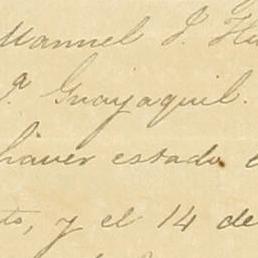 Manuel J. Hu
P.ª Guayaquil.
haver estado
to, y el 14 de